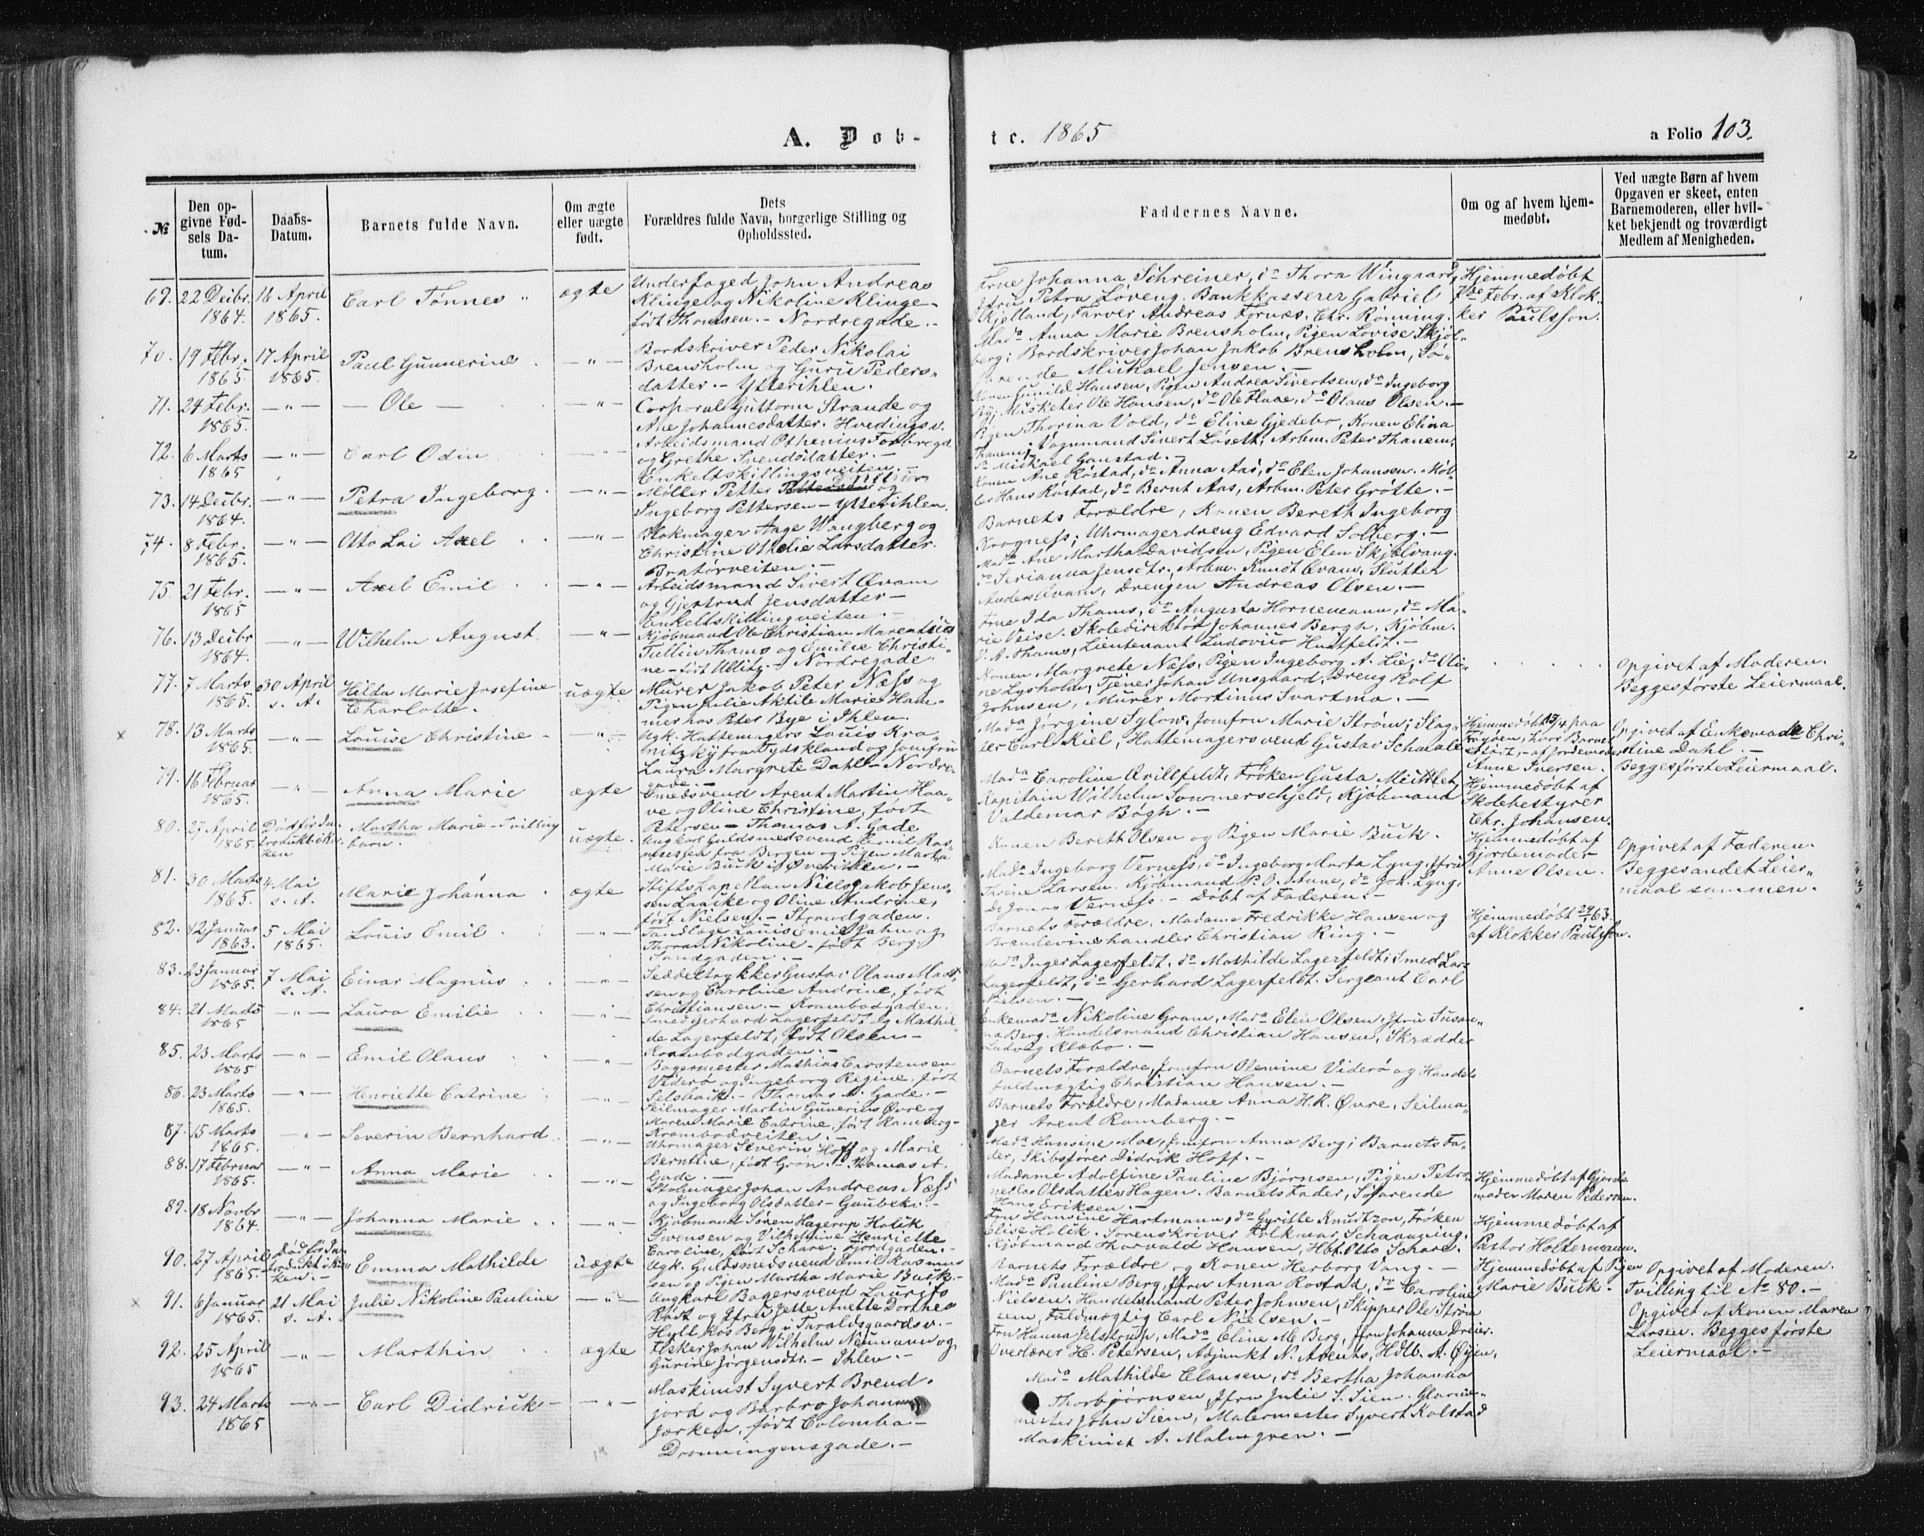 A. Døb-
te. 1865
a Folio 103.
№
Den op-
givne Fød-
sels Da-
tum.
Daabs-
Datum.
Barnets fulde Navn.
Om ægte
eller uægte
født.
Dets
Forældres fulde Navn, borgerlige Stilling og
Opholdssted.
Faddernes Navne.
Om og af hvem hjem-
medøbt.
Ved uægte Børn af hvem
Opgaven er skeet, enten
Barnemoderen, eller hvil-
ket bekjendt og troværdigt
Medlem af Menigheden.
69. 22 Decbr. 1864. 16 April 1865. Carl Tønnes ægte
Underfoged John Andreas
Klinge og Nikoline Klinge
født Thomsen. - Nordregade. -
Frue Johanna Schreiner, do Thora Wingaard,
Jfru Petra Løveng. Bankkasserer Gabriel
Kjelland, Farver Andreas Fornæs, Chr. Rønning.
Hjemmedøbt
Febr. af Klok-
ker Paulsson.
70. 19 Febr. 1865. 17 April 1865. Paul Gunnerius -"-
Bordskriver Peder Nikolai
Brensholm og Guru Peders-
datter. - Ytterihlen.
Mada Anna Marie Brensholm, Pigen Lovise Skjøl-
berg; Bordskriver Johan Jakob Brensholm, Sø-
farende Michael Jensen. -
71. 24 Febr. 1865. -"- Ole -"-
Corporal Guttorm Strande og
Ane Johannesdatter. Hvedingsv.
Konen Gunild Hansen, Pigen Andrea Sivertsen, do Ingeborg
By; Musketer Ole Hansen, do Ole Flaae, do Olaus Olsen. -
72. 6 Marts 1865 -"- Carl Odin -"-
Arbeidsmand Othenius
og Grethe Svendsdatter. -
Enkeltskillingsveiten. -
Pigen Thorina Vold, do Eline Gjedebo, Konen Elina
Thanem; Vognmand Sivert Løseth, Arbm. Peter Thanem,
do Michael Ganstad. -
73. 14 Decbr. 1864. -"- Petra Ingeborg -"-
Møller Petter
Ingeborg Pettersen - Ytterihlen.
Konen Ane Røstad, do Anna Aas, do Elen Johansen. Møl-
ler Hans Røstad, do Bernt Aas, Arbm. Peter Grøtte. -
74. 8 Febr. 1865. -"- Otto Lai Axel -"-
Blokmager Aage Wangberg og
Christine Othelie Larsdatter.
Bratørveiten. -
Barnets Forældre, Konen Bereth Ingeborg
Krogness; Uhrmagerdreng Edvard Solberg. -
75. 21 Febr. 1865 -"- Axel Emil -"-
Arbeidsmand Sivert Øvam
og Gjertrud Jensdatter -
Enkeltskillingveiten. -
Mada Ane Martha Davidsen, Pigen Elen Skjelvang.
do Serianna Jensdtr; Arbm. Knudt Øvam, Slutter
Anders Øvam, Drengen Andreas Olsen. -
76. 13 Decbr 1864. -"- Wilhelm August -"-
Kjøbmand Ole Christian Marentius
Tullin Thams og Emilie Christi-
ne født Ulitz. - Nordregade.
Frue Ida Thams, do Augusta Hornemann, do Ma-
rie Veise. Skoledirektør Johannes Bergh, Kjøbm.
A. Thams, Lieutenant Ludovico Huitfeldt. -
77. 7 Marts 1865. 30 April s. A. Hilda Marie Josefine Charlotte. uægte
Murer Jakob Peter Næss og
Pigen Julie Aktile Marie Ham-
mer hos Peter Bye i Ihlen.
Konen Margrete Næss, Pigen Ingeborg A. Lie, do Oli-
ne Lysholm, Tjener Johan Unsgaard, Dreng Rolf
Johnsen, Murer Mortinus Svartmo. -
Opgivet af Moderen.
Beggesførste Leiermaal.
78. 13 Marts 1865. -"- Louise Christine -"-
Ugk. Hattemagers. Louis Kra-
nitzky fra Tydskland og Jomfru
Laura Margrete Dahl - Nordre-
gade. -
Mada Jørgine Sylow, Jomfru Marie Strøm; Slag-
ter Carl Kiel, Hattemagersvend Gustav Schalale
Hjemmedøbt paa
Frøyen, hvor Barnet
er født, - af Jordemoder
Anne Iversen.
Opgivet af Enkemada Chri-
stine Dahl. -
Beggesførste Leiermaal.
79. 16 Februar 1865. -"- Anna Marie ægte
Smedsvend Arent Martin Haa-
ve og Oline Christine, født
Petersen - Thomas A. Gade
Mada Caroline Qvillfeldt, Frøken Gusta Meittlet,
Kapitain Wilhelm Sommerschjeld, Kjøbmand
Valdemar Bøgh. -
Hjemmedøbt af
Skolebestyrer
Chr. Johansen.
80. 27 April 1865. Martha Marie - Tvilling barn. uægte
Ungkarl Guldsmedsvend Emil Ras-
mussen fra Bergen og Pigen Marta
Marie Buck i Øvreihlen.
Konen Bereth Olsen og Pigen Marie Buck.
Hjemmedøbt af
Gjordemoder
Anne Olsen.
Opgivet af Faderen.
Beggesandet Leier-
maal sammen.
81. 30 Marts 1865. 4 Mai s. A. Marie Johanna ægte
Stiftskapellan Niels Jakob Jens-
sen Laache og Oline Andrine,
født Nielsen. - Strandgaden.
Mada IngeborgVerness, do Ingeborg Marta Lyng, Jfru
Trine Larsen. Kjøbmand P. O. Aune, do Joh. Lyng,
Dr Jonas Verness. - Døbt af Faderen. -
82. 12 Januar 1863. 5 Mai 1865. Louis Emil -"-
Louis Emil Jahn og
Thora Nikoline - født Berg,
Sandgaden. -
Barnets Forældre, Madame Fredrikke Hansen og
Brændeviinshandler Christian Ring. -
Hjemmedøbt 63.
af Klokker Paulsson.
83. 23 Januar 1865. 7 Mai s. A. Einar Magnus -"-
Seddeltrykker Gustav Olaus Mad-
sen og Caroline Andrine, født
Christiansen. - Krambodgaden.
Mada Inger Lagerfeldt, do Mathilde Lagerfeldt; Smed Lars
Lagerfeldt, do Gerhard Lagerfeldt. Sergeant Carl
Nielsen. -
84. 21 Marts 1865 -"- Laura Emilie -"-
Smed Gerhard Lagerfeldt og Mathil-
de Lagerfeldt, født Olsen -
Krambodgaden. -
Enkemada Nikoline Gram, Mada Elen Olsen, Jfru Susan-
na Berg. Handelsmand Christian Hansen, Skrædder
Ludvig Klæbo. -
85. 23 Marts 1865 -"- Emil Olaus -"-
Bagermester Mathias Carstensen
Viderø og Ingeborg Regine, født
Selsbak. - Thomas A. Gade. -
Barnets Forældre, Jomfru Olemine Viderø og Handels
fuldmægtig Christian Hansen. -
86. 23 Marts 1865. -"- Henriette Catrine -"-
Seilmager Martin Guverius Øvre og
Maren Marie Catrine, født Ramberg -
Krambodveiten. -
Barnets Forældre, Madame Anna H. R. Øvre, Seilma-
ger Arent Ramberg. -
87. 15 Marts 1865. -"- Severin Bernhard -"-
Uhrmager Severin Hoff og Marie
Berntine, født Grøn. - Thomas A.
Gade. -
Mada Hansine Moe, Jomfru Anna Berg; Barnets Fa-
der, Skibsfører Didrik Hoff. -
88. 17 Februar 1865. -"- Anna Marie -"-
Stolmager Johan Andreas Næss
og Ingeborg Olsdatter - Gaubekv. -
Madame Adolfine Pauline Bjørnsen, Pigen Petro-
nella Olsdatter Hagen. Barnets Fader, Søfarende
Hans Eriksen. -
Hjemmedøbt af Gjorde
moder Maren Pedersen.
89. 18 Novbr 1864. -"- Johanna Marie -"-
Kjøbmand Søren Hagerup Holck
Svensen og Vilhelmine Henriette
Caroline, født Scharer. Fjordgaden. -
Fru Hansine Hartmann, do Gyritte Knudtzon, Frøken
Elise Holck. Sorenskriver Folkmar Schavning.
Kjøbmand Thorvald Hansen, Hbt. Otto Scharer.
Hjemmedøbt af
Pastor Holtermann.
90. 27 April 1865. Emma Mathilde uægte
Ugk. Guldsmedsvend Emil Rasmus-
sen og Pigen Martha Marie Busk. -
Barnets Forældre og Konen Herborg Vang. -
Hjemmedøbt af Pigen
Marie Buck.
Opgivet af Moderen.
Tvilling til No 80. -
91. 6 Januar 1865. 21 Mai s. A. Julie Nikoline Pauline -"-
Ungkarl Bagersvend Laurits
Røst og Jfru Jette Anette Dorthea
Hyll hos Berg i Taraldsgaardsv. -
Mada Pauline Berg, Jfru Anna Rostad, do Caroline
Nielsen. Handelsmand Peter Johnsen, Skipper Ole Strøm
Fuldmægtig Carl Nielsen. -
Opgivet af Konen Maren
Larsen. Beggesførste
Leiermaal. -
92. 25 April 1865 -"- Marthin ægte
Fisker Johan Wilhelm Neumann og
Gurine Jørgensdtr. - Ihlen. -
Fru Hanna Jelstrup, Mada Eline M. Berg, Jfru Johanna Dreier.
Overlærer H. Petersen, Adjunkt N. Arents, Hdlb. A. Øyen,
93. 24 Marts 1865 -"- Carl Didrick -"-
Maskinist Syvert Brend-
jord og Barbro Johanne
Jørken, født Colomba -
Dronningensgade. -
Mada Mathilde Clausen, do Bertha Johanna
Thorbjørnsen, Jfru Julie S. Sien. Glarme-
mester John Sien, Malermester Syvert Kolstad
Maskinist A. Malmgren. -